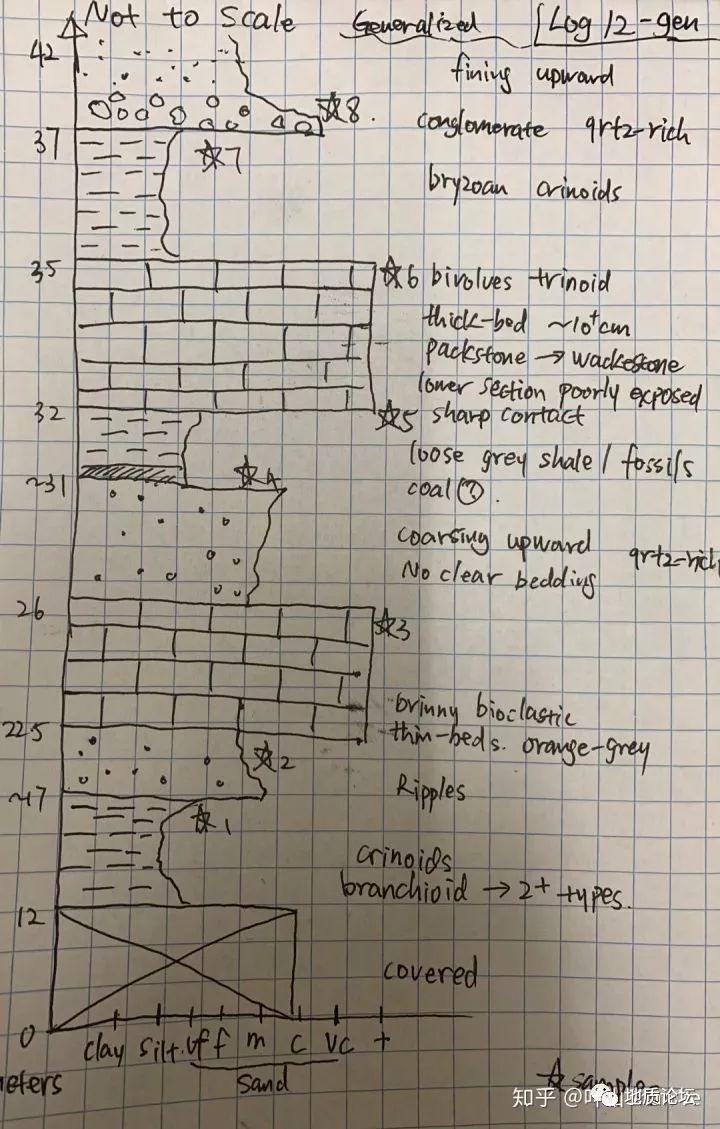 Not to Scale Generalized Log 12-gen
42
fining upward
☆8.
conglomerate qrtz-rich
37
☆7
bryzoan crinoids
35
☆6 bivolves trinoid
thick-bed ~10+cm
packstone → wackestone
lower section poorly exposed
32
☆5 sharp contact
loose grey shale / fossils
~31
☆4
coal ?.
coarsing upward qrtz-rich
No clear bedding
26
☆3
brinny bioclastic
22.5
thin-beds. orange-grey
☆2
~17
Ripples
☆1
crinoids
branchioid → 2+ types.
12
covered
0
clay silt vf f m c vc +
sand
meters
☆ sample
知乎
地质论坛